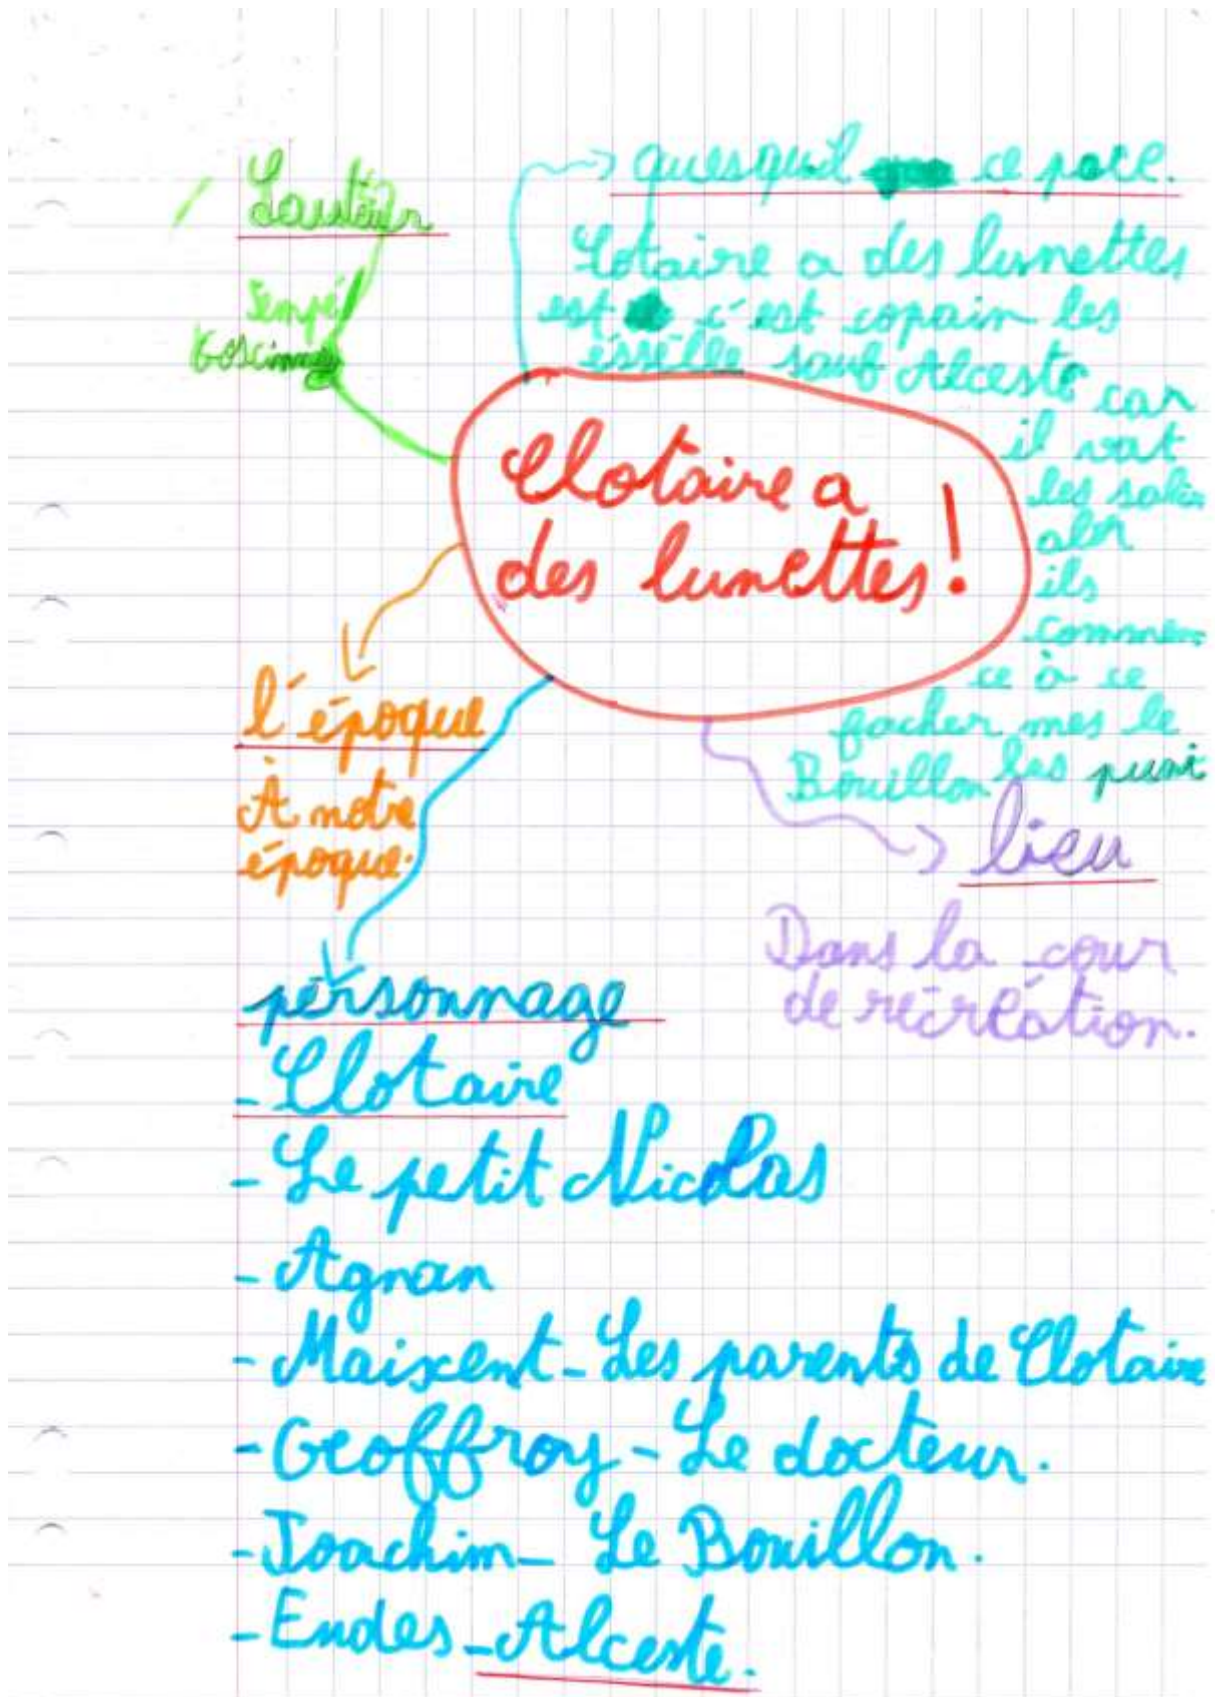 L'auteur
Sempé
Goscinny
quesquil ce pace.
Clotaire a des lunettes
est c'est copain les
éssélle sauf Alceste car
il vat
les salir
alor
ils
commen
ce à ce
facher mes le
Bouillon les puni
Clotaire a
des lunettes !
l'époque
À notre
époque.
lieu
Dans la cour
de récréation.
personnage
- Clotaire
- Le petit Nicolas
- Agnan
- Maixent - Les parents de Clotaire
- Geoffroy - Le docteur.
- Joachim - Le Bouillon.
- Eudes - Alceste.